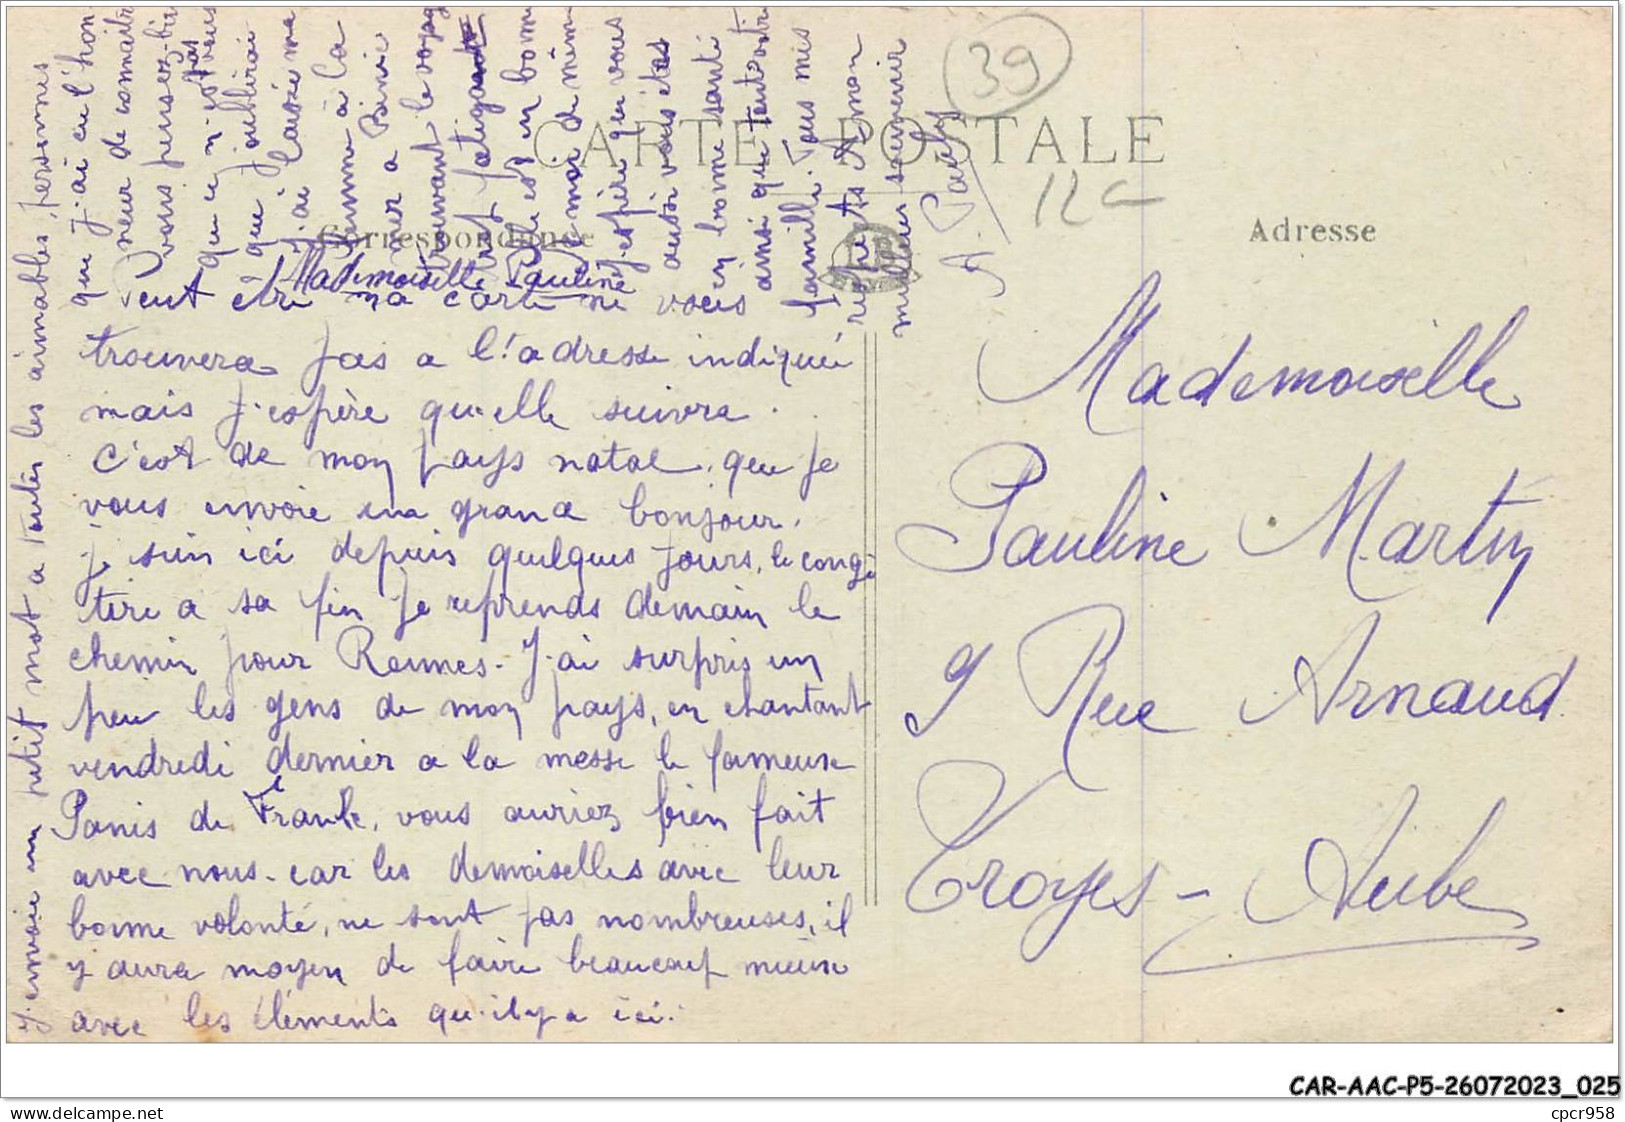 CARTE POSTALE
Correspondance
Adresse
39
12 c
Mademoiselle Pauline
Peut être ma carte ne vous
trouvera pas a l'adresse indiqué
mais j'espère qu'elle suivra.
C'est de mon pays natal, que je
vous envoie un grand bonjour.
je suis ici depuis quelques jours, le congé
tire a sa fin je reprends demain le
chemin pour Rennes. J'ai surpris un
peu les gens de mon pays, en chantant
vendredi dernier a la messe le fameux
Panis de Frank, vous auriez bien fait
avec nous. car les demoiselles avec leur
bonne volonté, ne sont pas nombreuses, il
y aura moyen de faire beaucoup mieux
avec les éléments qu'il y a ici.
J'envoie un petit mot a toutes les aimables personnes
que j'ai eu l'hon
neur de connaitre
vous pensez bien
que ce n'est pas vous
que j'oublirai
j'ai laissé ma
femme à la
mer a Binic
trouvant le voyage
trop fatigant
Elle est en bonne
moi de même
j'espère que vous
aussi vous êtes
en bonne santé
ainsi que toute votre
famille. Tous mes
respects & mon
meilleur souvenir
A. Pauly
Mademoiselle
Pauline Martin
9 Rue Arnaud
Troyes - Aube
CAR-AAC-P5-26072023_025
www.delcampe.net
cpcr958